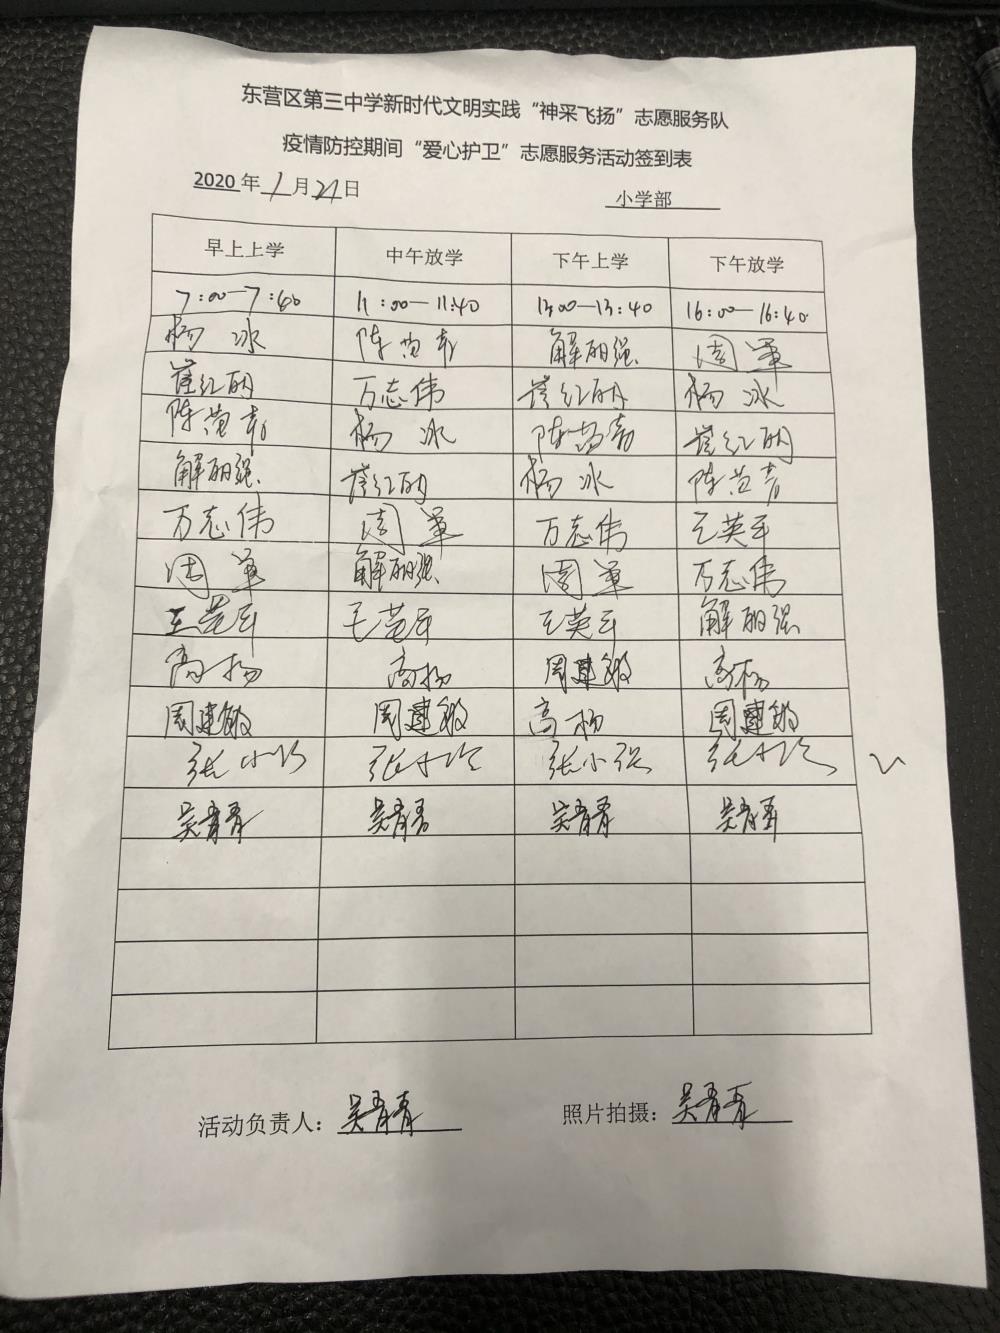 东营区第三中学新时代文明实践“神采飞扬”志愿服务队
疫情防控期间“爱心护卫”志愿服务活动签到表
2020年1月21日 小学部
早上上学 中午放学 下午上学 下午放学
7:00—7:40 11:00—11:40 13:00—13:40 16:00—16:40
杨冰 解丽强 周军
崔红明 万志伟 崔红明 杨冰
杨冰 崔红明
解丽强 崔红明 杨冰
万志伟 周军 万志伟 王英军
周军 解丽强 周军 万志伟
王英军 王英军 王英军 解丽强
高杨 高杨 周建敏 高杨
周建敏 周建敏 高杨 周建敏
张小强
吴青青 吴青青 吴青青 吴青青
活动负责人：吴青青 照片拍摄：吴青青